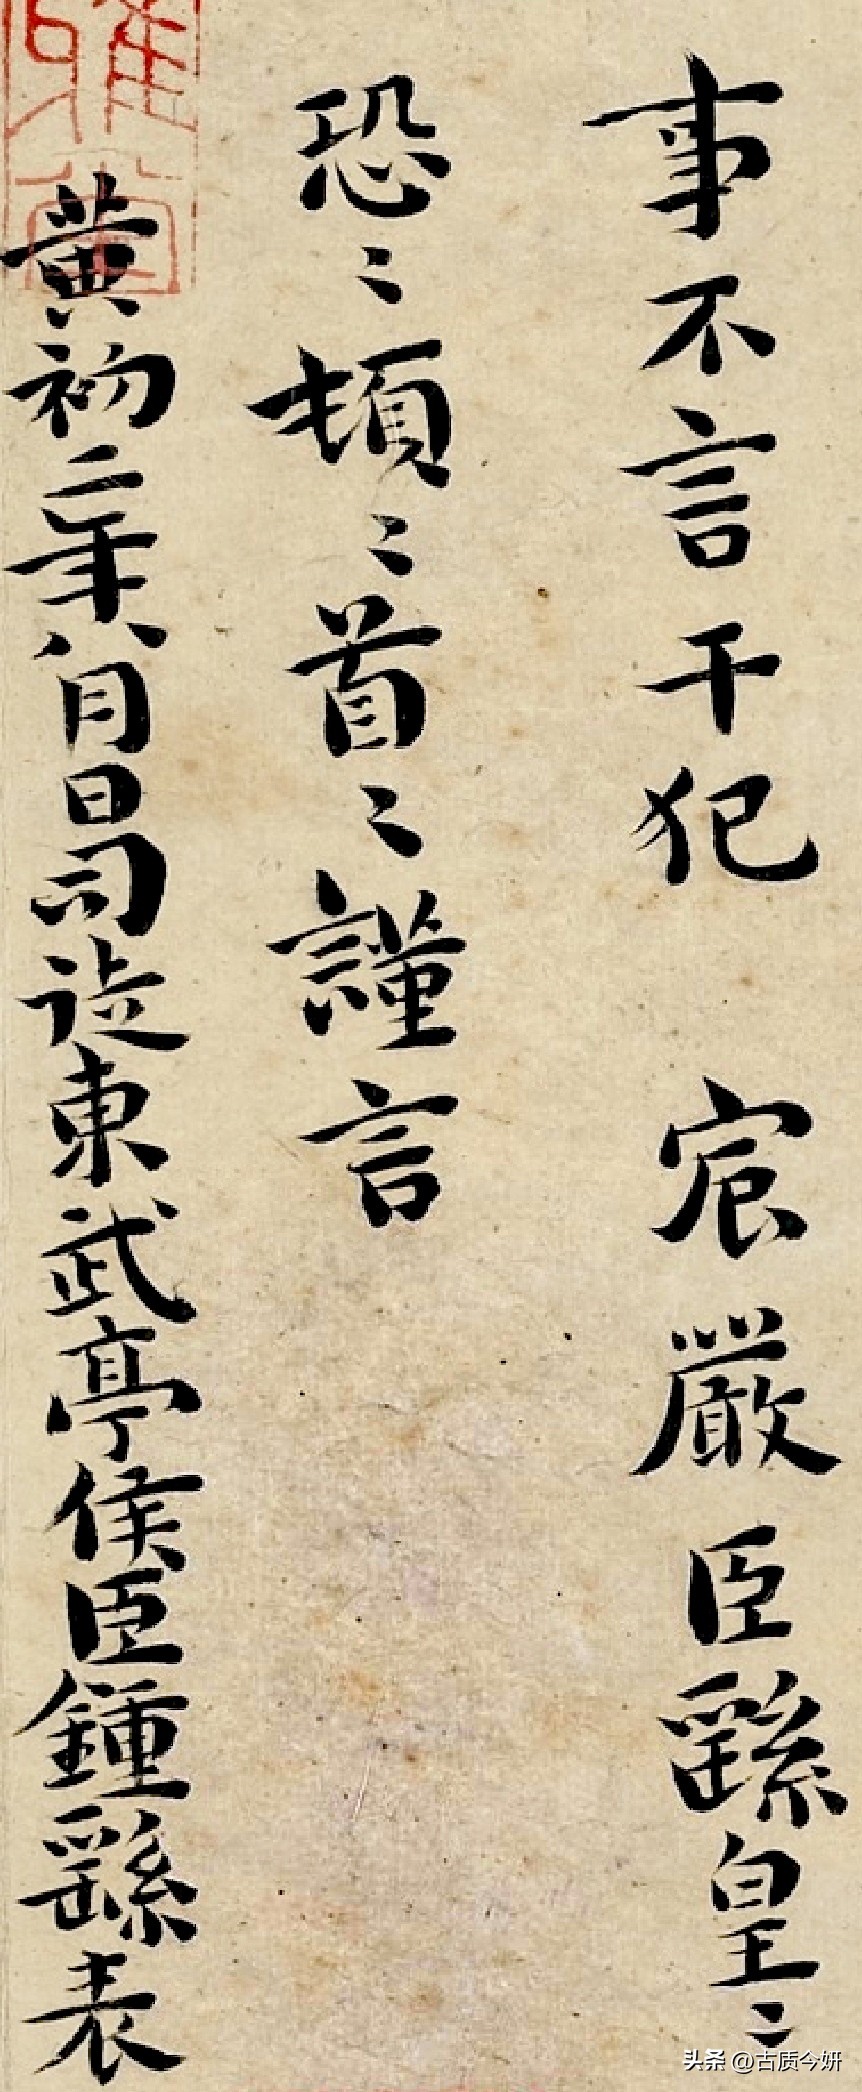 事不言干犯 宸嚴臣繇皇〻
恐〻頓〻首〻謹言
黄初二年八月日司徒東武亭侯臣鍾繇表
头条 @古质今妍